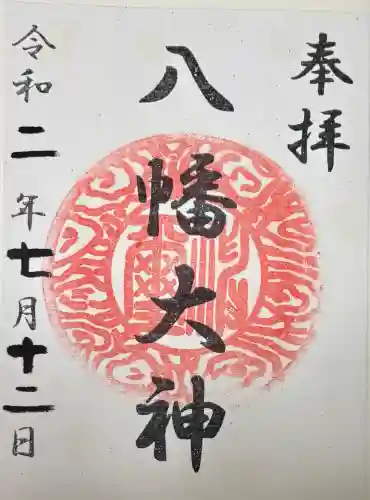 奉拝
八幡大神
令和二年七月十二日